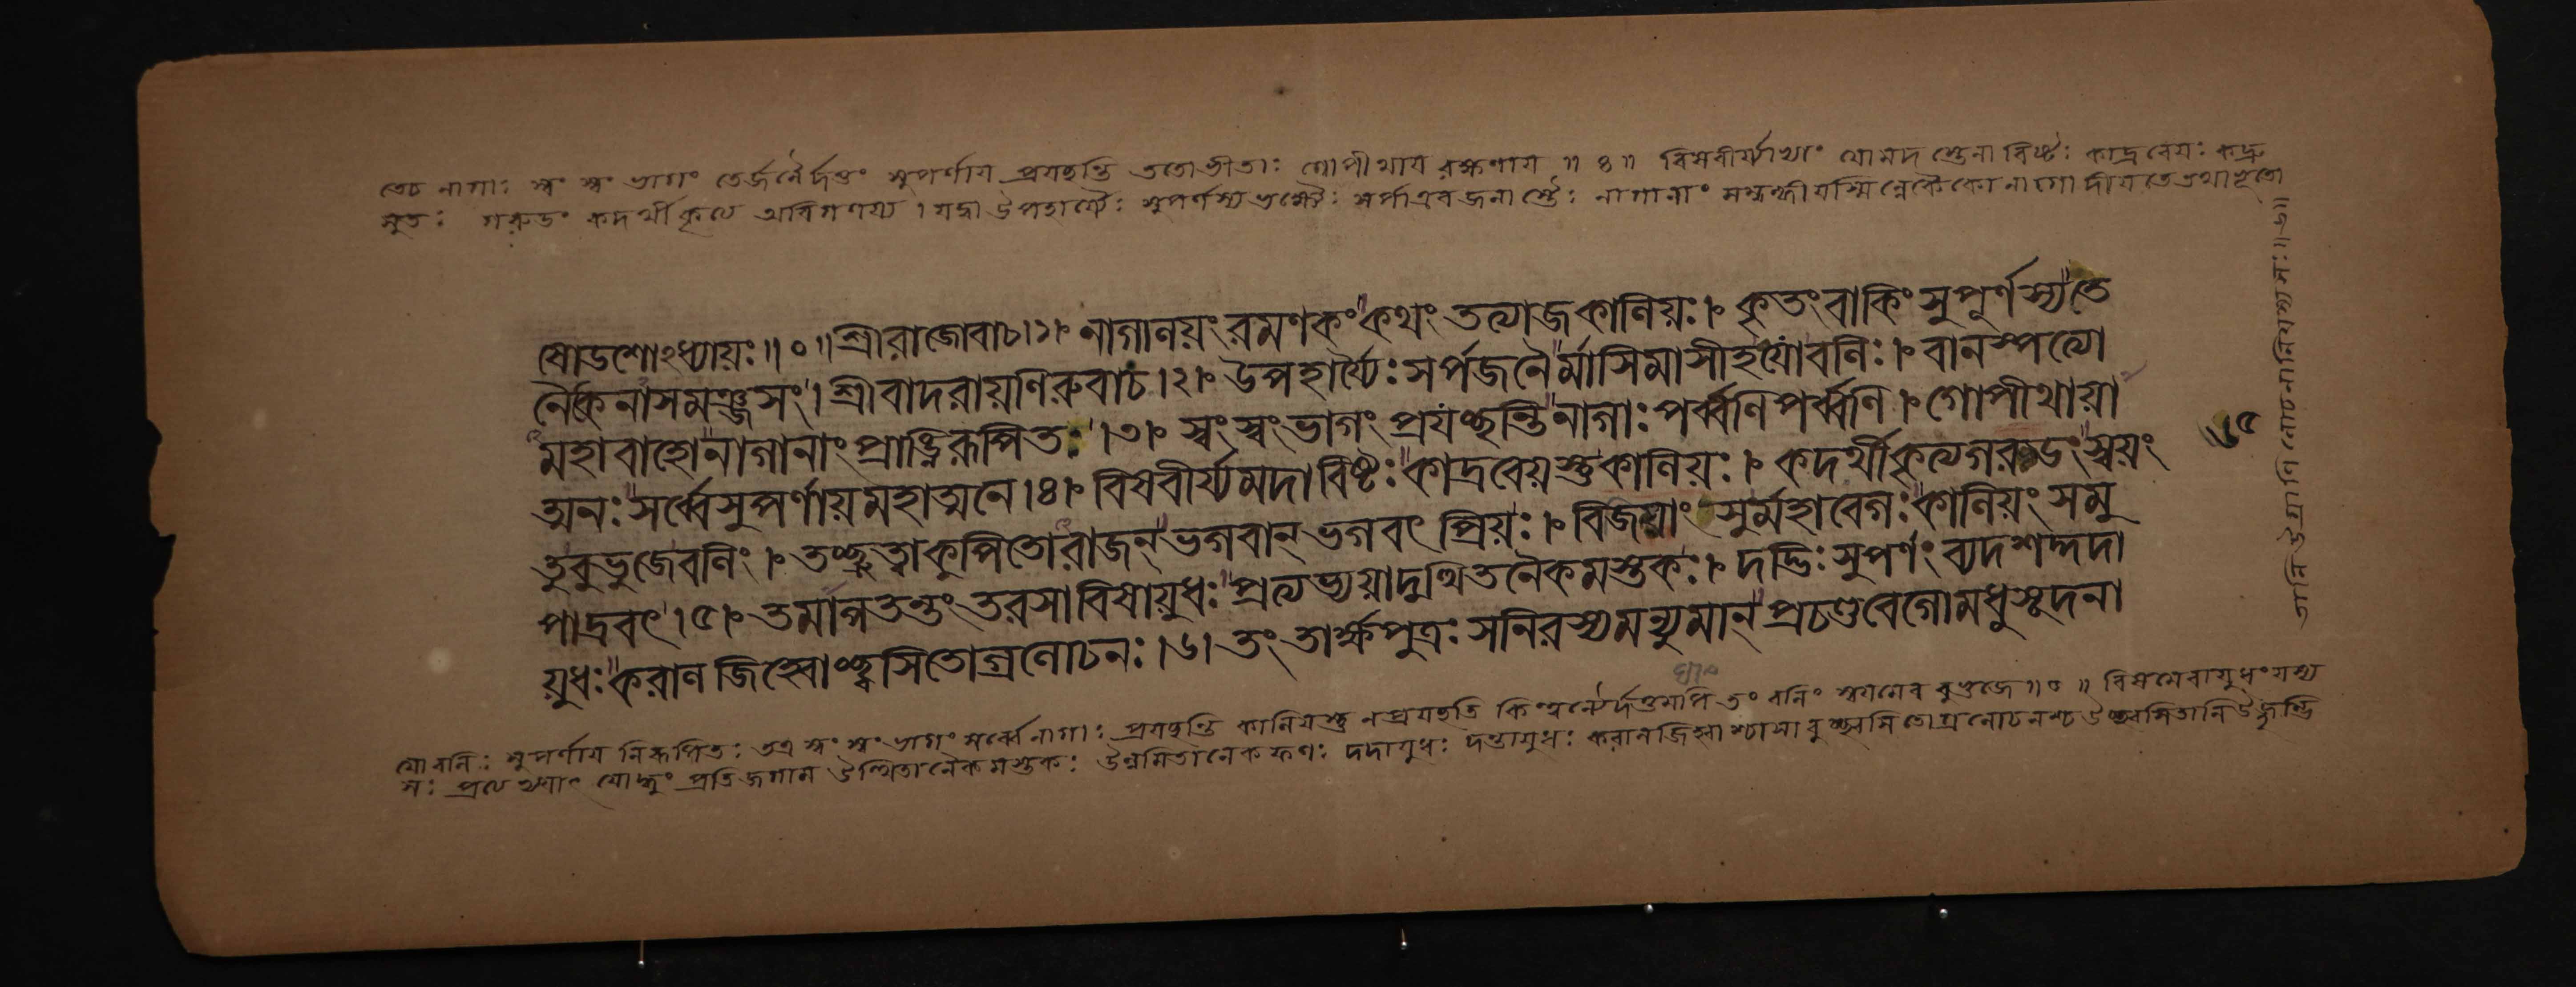 তেচ নাগাঃ স্বং স্বং ভাগং তৈর্জনৈর্দত্তং সুপর্ণায প্রযচ্ছন্তি ততোভীতাঃ গোপীথায রক্ষণায ॥ ৪ ॥ বিষবীর্য্যাভ্যাং যোমদ স্তেনাবিষ্টঃ কাদ্রবেযঃ কদ্রু
সুতঃ গরুডং কদর্থীকৃত্য অবিগণয্য । যদ্বা উপহার্য্যৈঃ সুপর্ণস্য ভক্ষ্যৈঃ সর্পাএবজনাস্তৈঃ নাগানাং সম্বন্ধী যস্মিন্নেকৈকোনাগো দীযতে তথাভূতো
ষোডশোঽধ্যায়ঃ॥০॥শ্রীরাজোবাচ।১। নাগালয়ংরমণকংকথংতত্যাজকালিয়ঃ। কৃতংবাকিংসুপূর্ণস্যতে
নৈকেনাসমঞ্জসং।শ্রীবাদরায়ণিরুবাচ।২। উপহার্য্যৈঃসর্পজনৈর্মাসিমাসীহযোবলিঃ। বানস্পত্যো
মহাবাহোনাগানাংপ্রাঙ্নিরূপিতঃ।৩। স্বংস্বংভাগংপ্রযচ্ছন্তিনাগাঃপর্ব্বণিপর্ব্বণি। গোপীথায়া
ত্মনঃসর্ব্বেসুপর্ণায়মহাত্মনে।৪। বিষবীর্য্যমদাবিষ্টঃকাদ্রবেয়স্তুকালিয়ঃ। কদর্থীকৃত্যগরুডংস্বয়ং
তুবুভুজেবলিং। তচ্ছ্রুত্বাকুপিতোরাজন্ভগবান্ভগবৎ প্রিয়ঃ। বিজিঘাংসুর্মহাবেগঃকালিয়ংসমু
পাদ্রবৎ।৫। তমাপতন্তংতরসাবিষায়ুধঃপ্রত্যভ্যয়াদুত্থিতনৈকমস্তকঃ। দদ্ভিঃসুপর্ণংব্যদশদ্দদা
য়ুধঃকরালজিহ্বোচ্ছ্বসিতোগ্রলোচনঃ।৬। তংতার্ক্ষপুত্রঃসনিরস্যমন্যুমান্প্রচণ্ডবেগোমধুসূদনা
যো বলিঃ সুপর্ণায নিরূপিতঃ তত্র স্বং স্বং ভাগং সর্ব্বে নাগাঃ প্রযচ্ছন্তি কালিযস্তু নপ্রযচ্ছতি কিন্ত্বন্যৈর্দত্তমপি তং বলিং স্বযমেব বুভুজে॥০॥ বিষমেবাযুধং যস্য
সঃ যোদ্ধুং প্রতিজগাম উত্থিতানেকমস্তকঃ উন্নমিতানেকফণঃ দদাযুধঃ দন্তাযুধঃ